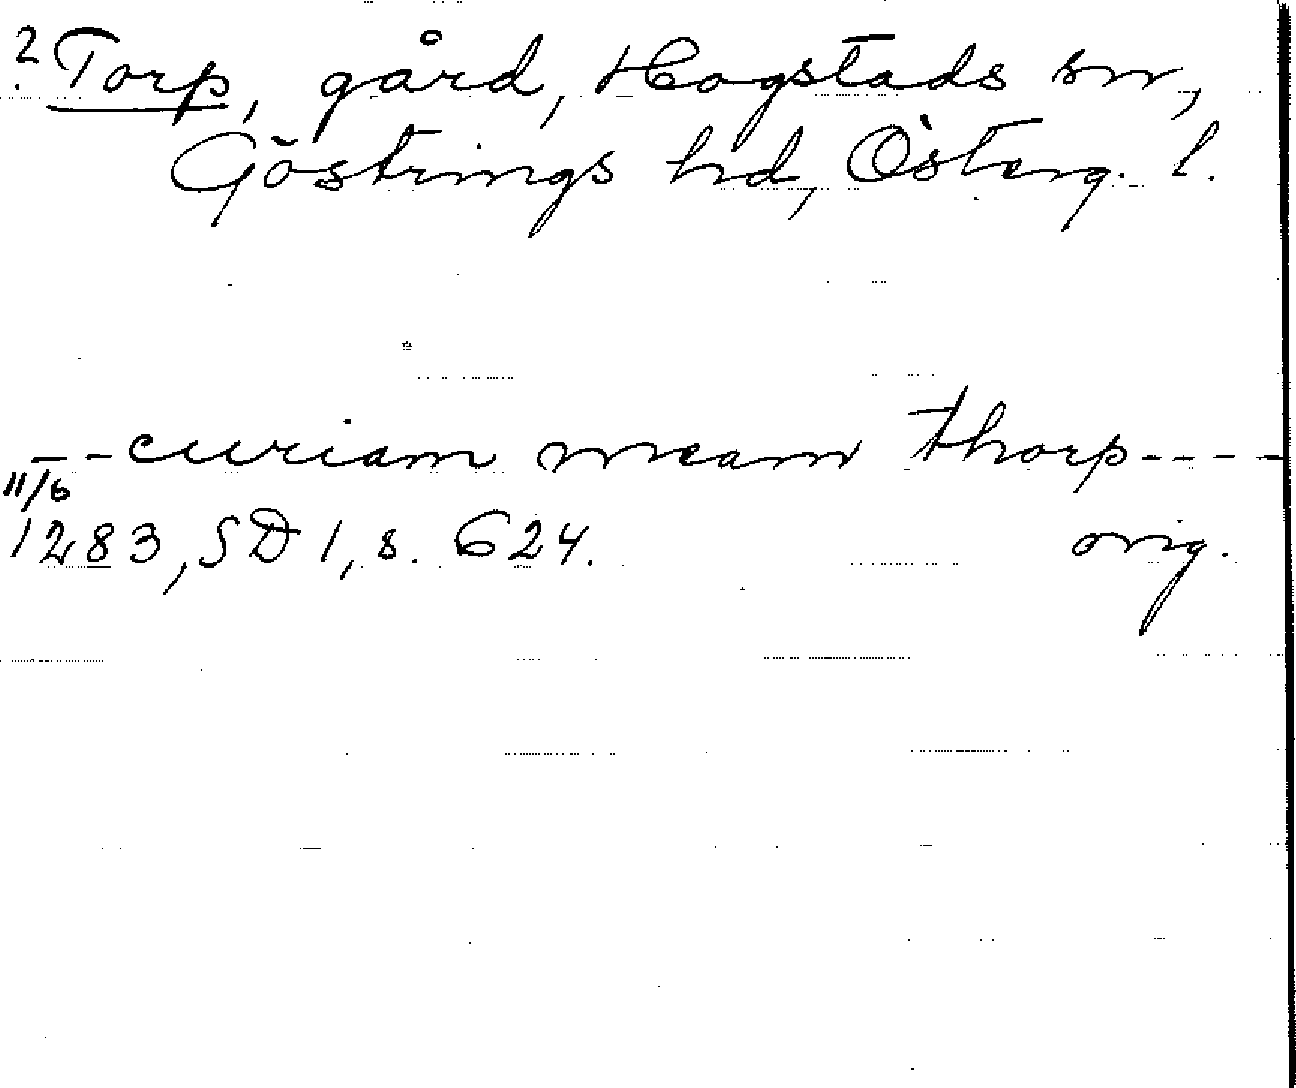 ? Torp, gård, Hogstads sn,
Göstrings hd, Österg. l.
- - curiam meam thorp - - - -
11/6
1283, SD 1, s. 624. orig.